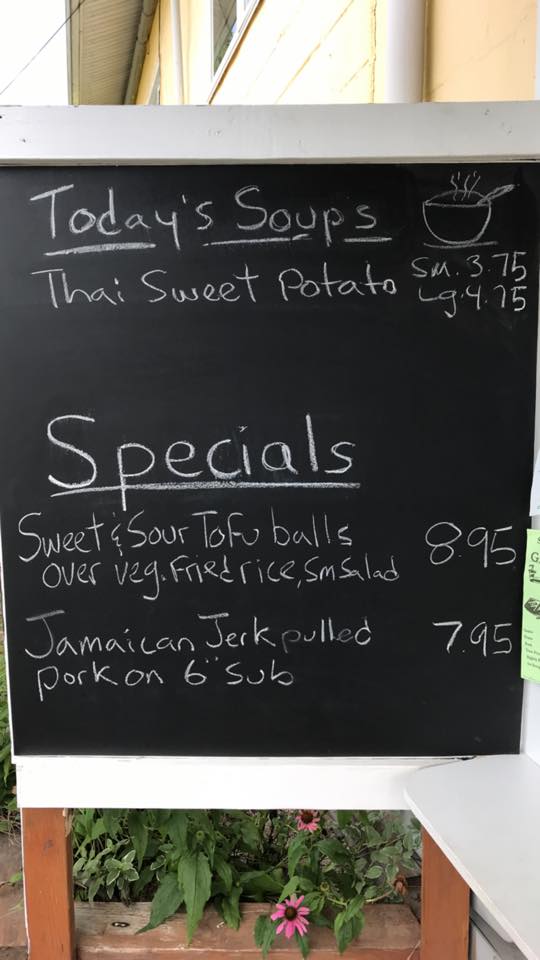 Today's Soups
Thai Sweet Potato Sm. 3.75
Lg. 4.75
Specials
Sweet & Sour Tofu balls 8.95
over veg. Fried rice, Sm Salad
Jamaican Jerk pulled 7.95
pork on 6" Sub